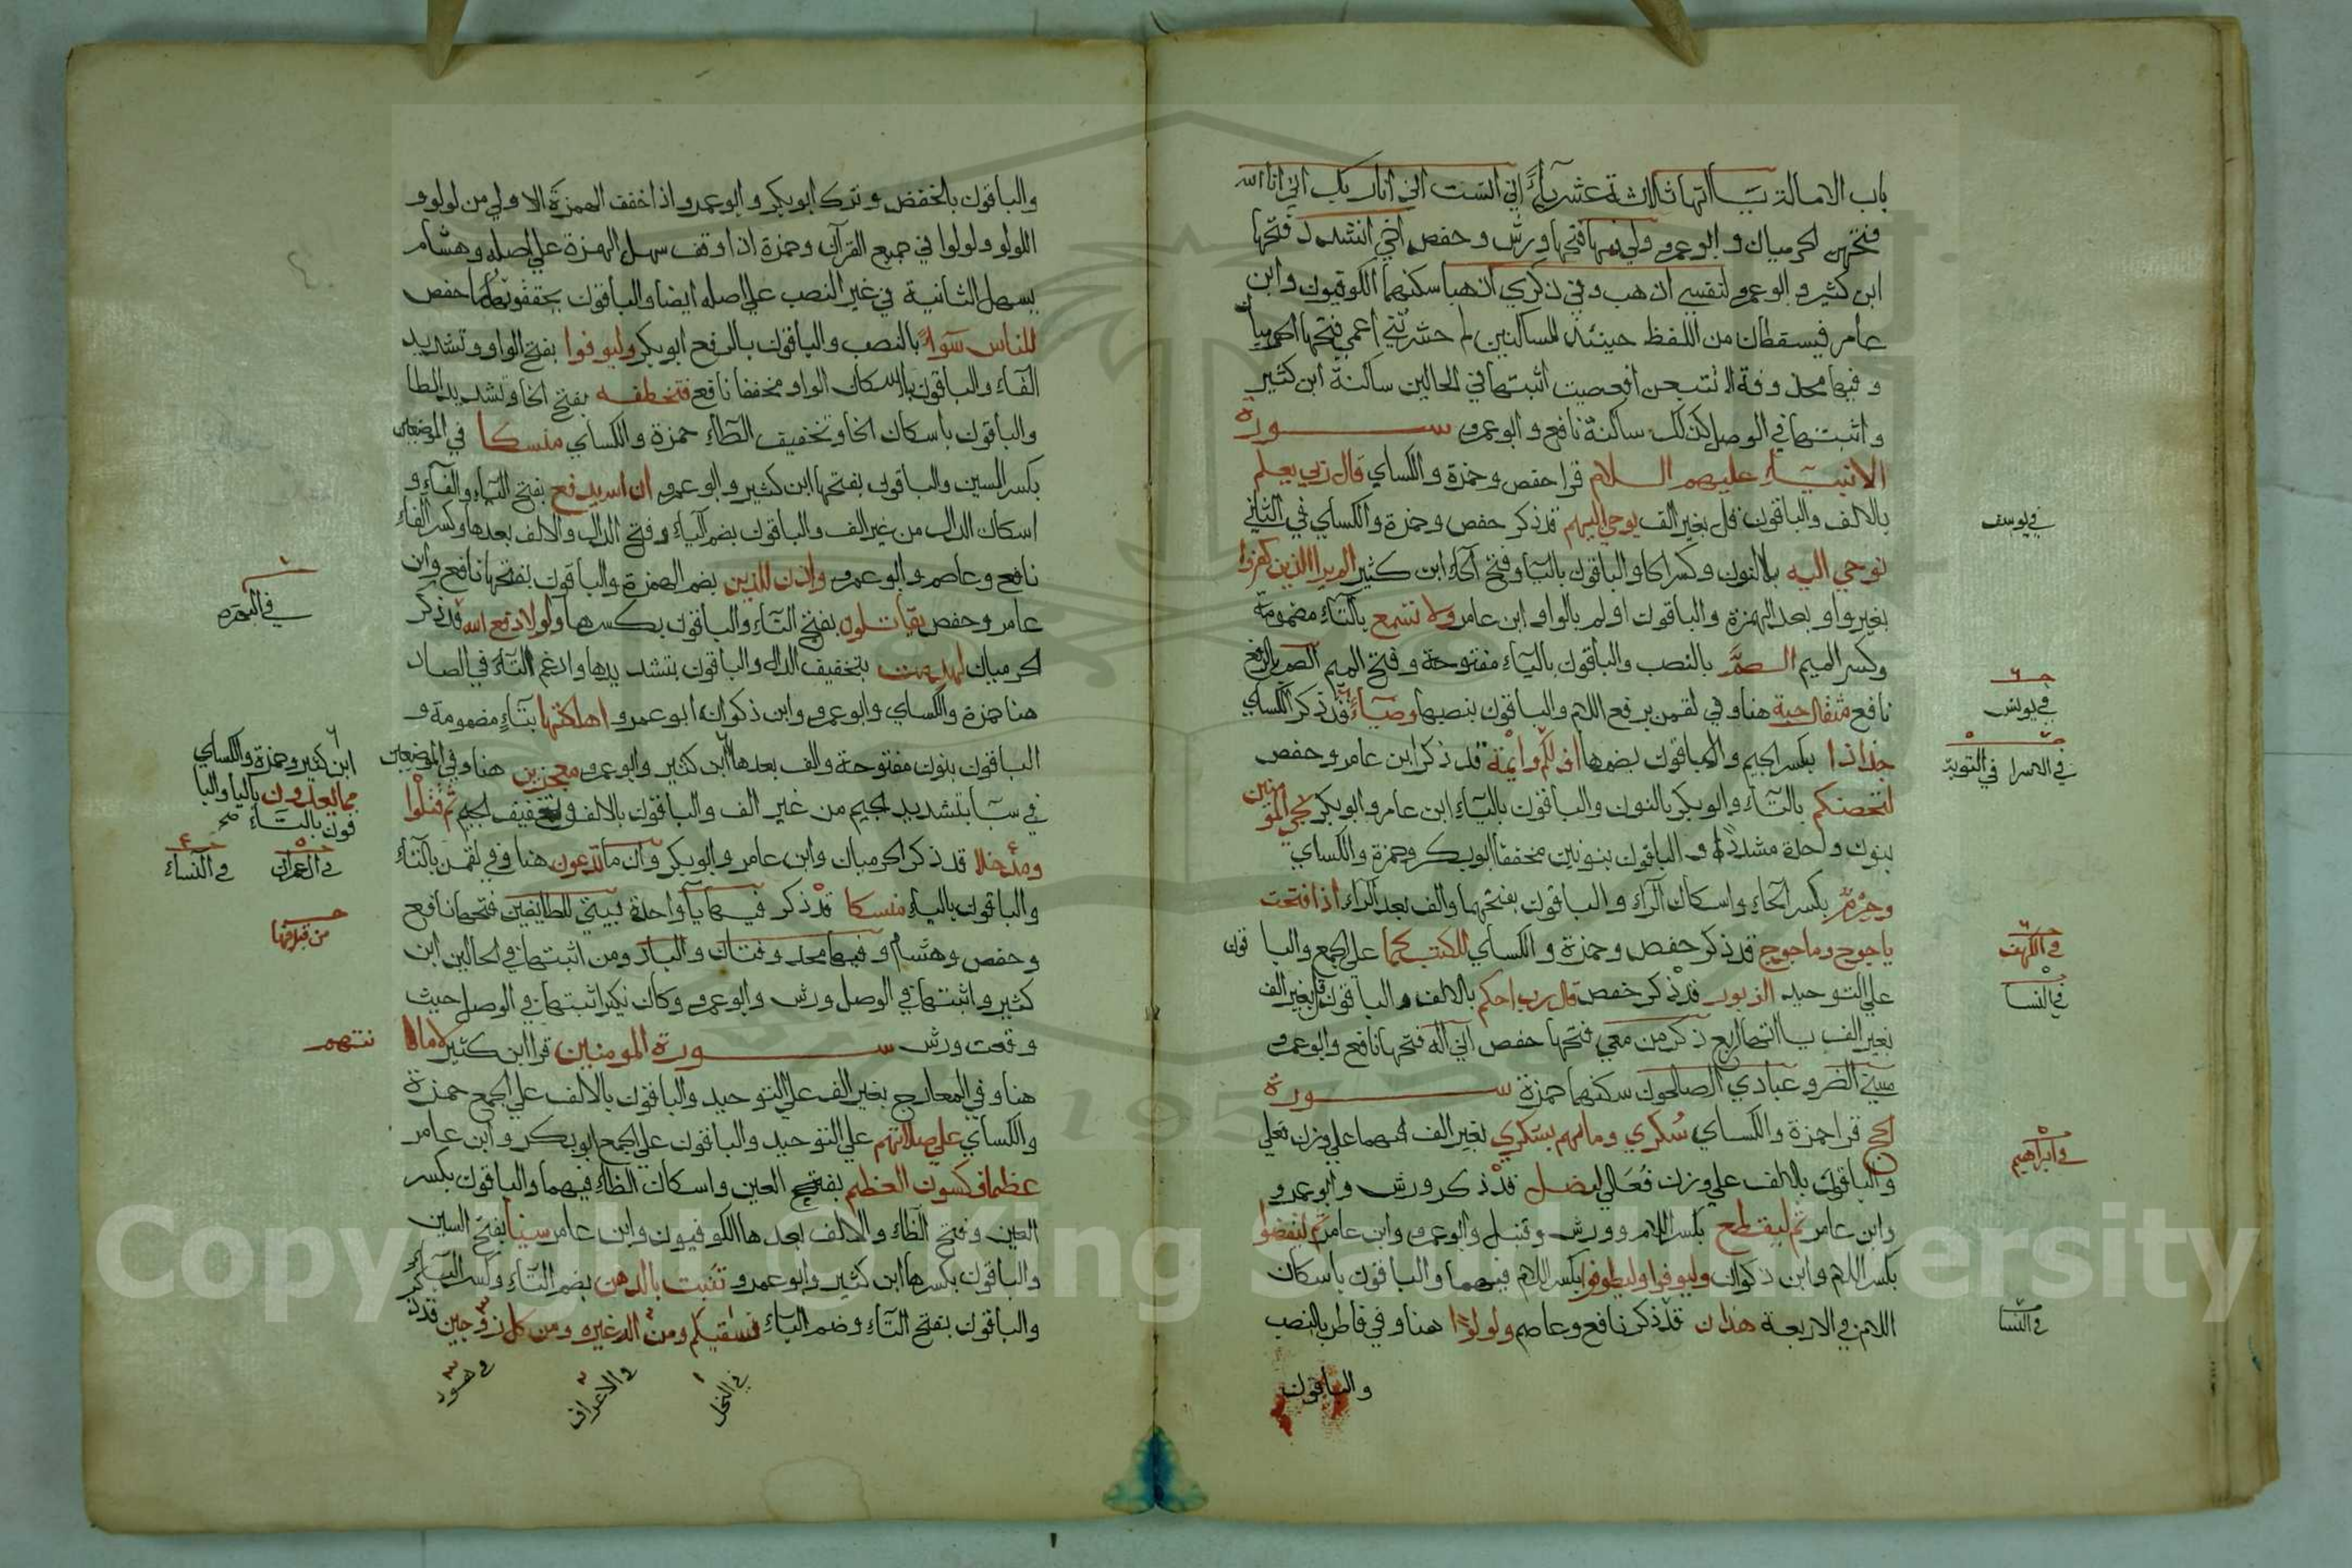 باب الامالة ياآتها ثلاث عشرياء اني انست اني انا ربك انني انا الله
فتحهن الحرميان وابو عمرو ولي فيها فتحها ورش وحفص اخي اشدد فتحها
ابن كثير وابو عمرو لنفسي اذهب وفي ذكري اذهبا سكنهما الكوفيون وابن
عامر فيسقطان من اللفظ حينئذ للساكنين لم حشرتني اعمي فتحها الحرميان
وفيها محذوفة الا تتبعن افعصيت اثبتها في الحالين ساكنة ابن كثير
واثبتها في الوصل كذلك ساكنة نافع وابو عمرو ســورة
الانبياء عليهم السلام قرا حفص وحمزة والكساي قال ربي يعلم
بالالف والباقون قل بغير الف يوحي اليهم قد ذكر حفص وحمزة والكساي في الثاني
نوحي اليه بالنون وكسر الحا والباقون بالياء وفتح الحاء ابن كثير الم ير الذين كفروا
بغير واو بعد الهمزة والباقون اولم بالواو ابن عامر ولا تسمع بالتاء مضمومة
وكسر الميم الصم بالنصب والباقون بالياء مفتوحة وفتح الميم الصم بالرفع
نافع مثقال حبة هنا وفي لقمن برفع اللام والباقون بنصبها وضياء قد ذكر الكساي
جذاذا بكسر الجيم والباقون بضمها اف لكم وايمة قد ذكر ابن عامر وحفص
لتحصنكم بالتاء وابو بكر بالنون والباقون بالياء ابن عامر وابو بكر نجي المؤمنين
بنون واحدة مشددا والباقون بنونين مخففا ابو بكر وحمزة والكساي
وحرم بكسر الحاء واسكان الراء والباقون بفتحهما والف بعد الراء اذا فتحت
ياجوج وماجوج قد ذكر حفص وحمزة والكساي للكتب كما علي الجمع والباقون
علي التوحيد الزبور قد ذكر حفص قال رب احكم بالالف والباقون قل بغير الف
بغير الف ياآتها اربع ذكر من معي فتحها حفص اني اله فتحها نافع وابو عمرو
مسني الضر وعبادي الصالحون سكنها حمزة ســورة
الحج قرا حمزة والكساي سكري وما هم بسكري بغير الف فيهما علي وزن فعلي
والباقون بالالف علي وزن فعالي ليضل قد ذكر ورش وابو عمرو
وابن عامر ثم ليقطع بكسر اللام وورش وقنبل وابو عمرو وابن عامر ثم ليقضوا
بكسر اللام وابن ذكوان وليوفوا وليطوفوا بكسر اللام فيهما والباقون باسكان
اللام في الاربعة هذان قد ذكر نافع وعاصم ولولوا هنا وفي فاطر بالنصب
والباقون
في يوسف
في يونس
في الاسرا في التوبة
في الكهف
في النسا
في ابراهيم
في النسا
والباقون بالخفض وترك ابو بكر وابو عمرو اذا خفف الهمزة الاولي من لولو و
اللولو ولولوا في جميع القرآن وحمزة اذا وقف سهل الهمزة علي اصله وهشام
يسهل الثانية في غير النصب علي اصله ايضا والباقون يحققونهما حفص
للناس سواء بالنصب والباقون بالرفع ابو بكر وليوفوا بفتح الواو وتشديد
الفاء والباقون بالاسكان الواو مخففا نافع فتخطفه بفتح الخا وتشديد الطا
والباقون باسكان الخا وتخفيف الطاء حمزة والكساي منسكا في الموضعين
بكسر السين والباقون بفتحها ابن كثير وابو عمرو ان الله يدفع بفتح الياء والفاء و
اسكان الدال من غير الف والباقون بضم الياء وفتح الدال والالف بعدها وكسر الفاء
نافع وعاصم وابو عمرو واذن للذين بضم الهمزة والباقون بفتحها نافع وابن
عامر وحفص يقاتلون بفتح التاء والباقون بكسرها ولولا دفع الله قد ذكر
الحرميان لهدمت بتخفيف الدال والباقون بتشديدها وادغم التاء في الصاد
هنا حمزة والكساي وابو عمرو وابن ذكوان ابو عمرو اهلكتها بتاء مضمومة و
الباقون بنون مفتوحة والف بعدها ابن كثير وابو عمرو معجزين هنا وفي الموضعين
في سبا بتشديد الجيم من غير الف والباقون بالالف وتخفيف الجيم ثم قتلوا
ومدخلا قد ذكر الحرميان وابن عامر وابو بكر وان ما تدعون هنا وفي لقمن بالتاء
والباقون بالياء منسكا قد ذكر فيها ياء واحدة بيتي للطايفين فتحها نافع
وحفص وهشام وفيها محذوفتان والباد ومن اثبتها في الحالين ابن
كثير واثبتها في الوصل ورش وابو عمرو وكان نكير اثبتها في الوصل حيث
وقعت ورش ســورة المومنين قرا ابن كثير لاماناتهم
هنا وفي المعارج بغير الف علي التوحيد والباقون بالالف علي الجمع حمزة
والكساي علي صلاتهم علي التوحيد والباقون علي الجمع ابو بكر وابن عامر
عظما فكسون العظم بفتح العين واسكان الظاء فيهما والباقون بكسر
العين وفتح الظاء والالف بعدها الكوفيون وابن عامر سيناء بفتح السين
والباقون بكسرها ابن كثير وابو عمرو تنبت بالدهن بضم التاء وكسر الباء
والباقون بفتح التاء وضم الباء نسقيكم ومن اله غيره ومن كل زوجين قد ذكر
في النحل
في الاعراف
في هود
في البقرة
ابن كثير وحمزة والكساي
مما يعدون بالياء والبا
قون بالتاء صح
في ال عمران في النساء